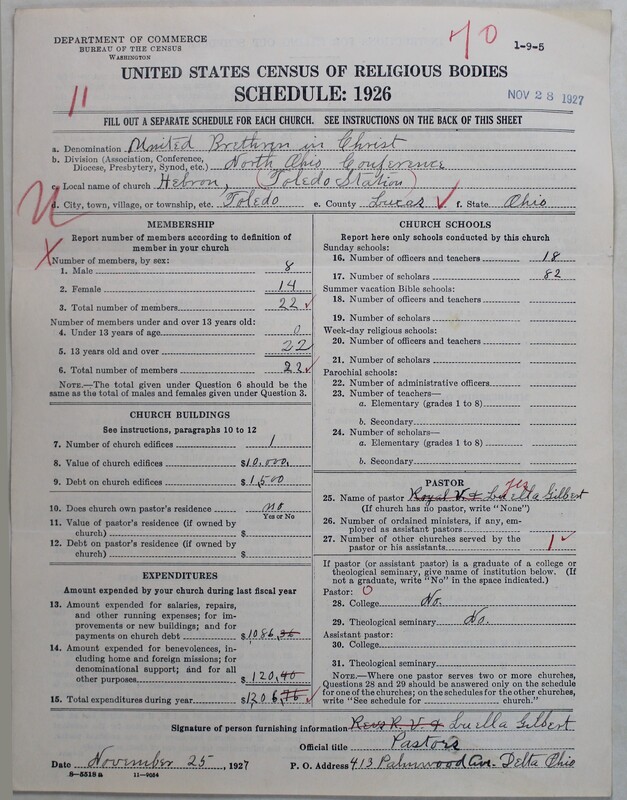 DEPARTMENT OF COMMERCE
BUREAU OF THE CENSUS
WASHINGTON
70
1-9-5
UNITED STATES CENSUS OF RELIGIOUS BODIES
11
SCHEDULE: 1926
NOV 28 1927
FILL OUT A SEPARATE SCHEDULE FOR EACH CHURCH. SEE INSTRUCTIONS ON THE BACK OF THIS SHEET
a. Denomination United Brethren in Christ
b. Division (Association, Conference, Diocese, Presbytery, Synod, etc.) North Ohio Conference
c. Local name of church Hebron, (Toledo Station)
d. City, town, village, or township, etc. Toledo e. County Lucas ✓ f. State Ohio
MEMBERSHIP
Report number of members according to definition of
member in your church
X
Number of members, by sex:
1. Male 8
2. Female 14
3. Total number of members 22 ✓
Number of members under and over 13 years old:
4. Under 13 years of age 0
5. 13 years old and over 22
6. Total number of members 22 ✓
NOTE.—The total given under Question 6 should be the
same as the total of males and females given under Question 3.
CHURCH BUILDINGS
See instructions, paragraphs 10 to 12
7. Number of church edifices 1
8. Value of church edifices $10,000.
9. Debt on church edifices $1,500
10. Does church own pastor's residence no
Yes or No
11. Value of pastor's residence (if owned by
church) $
12. Debt on pastor's residence (if owned by
church) $
EXPENDITURES
Amount expended by your church during last fiscal year
13. Amount expended for salaries, repairs,
and other running expenses; for im-
provements or new buildings; and for
payments on church debt $1086.36
14. Amount expended for benevolences,
including home and foreign missions; for
denominational support; and for all
other purposes $120.40
15. Total expenditures during year $1206.76 ✓
CHURCH SCHOOLS
Report here only schools conducted by this church
Sunday schools:
16. Number of officers and teachers 18
17. Number of scholars 82
Summer vacation Bible schools:
18. Number of officers and teachers
19. Number of scholars
Week-day religious schools:
20. Number of officers and teachers
21. Number of scholars
Parochial schools:
22. Number of administrative officers
23. Number of teachers—
a. Elementary (grades 1 to 8)
b. Secondary
24. Number of scholars—
a. Elementary (grades 1 to 8)
b. Secondary
PASTOR
yes
25. Name of pastor Royal V. & Luella Gilbert
(If church has no pastor, write "None")
26. Number of ordained ministers, if any, em-
ployed as assistant pastors
27. Number of other churches served by the
pastor or his assistants 1 ✓
If pastor (or assistant pastor) is a graduate of a college or
theological seminary, give name of institution below. (If
not a graduate, write "No" in the space indicated.)
Pastor: 0
28. College No.
29. Theological seminary No.
Assistant pastor:
30. College
31. Theological seminary
NOTE.—Where one pastor serves two or more churches,
Questions 28 and 29 should be answered only on the schedule
for one of the churches; on the schedules for the other churches,
write "See schedule for church."
Signature of person furnishing information Revs R. V. & Luella Gilbert
Official title Pastors
Date November 25, 1927 P. O. Address 413 Palmwood Av. Delta Ohio
8—5518a 11—9054